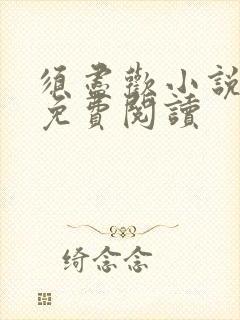 須盡歡小說
免費閱讀
绮念念